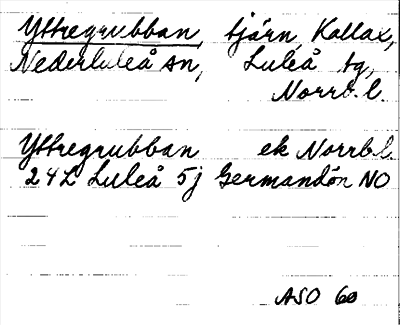 Yttregrubban, tjärn, Kallax,
Nederluleå sn, Luleå tg,
Norrb. l.
Yttregrubban ek Norrb.l.
24L Luleå 5j Germandön NO
ASO 60